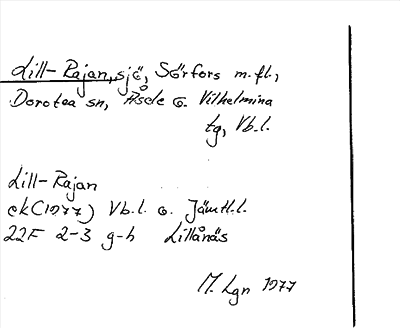 Lill-Rajan, sjö, Sörfors m.fl.,
Dorotea sn, Åsele o. Vilhelmina
tg, Vb.l.
Lill-Rajan
ek(1977) Vb.l. o. Jämtl.l.
22F 2-3 g-h Lillånäs
M. Lgn 1977